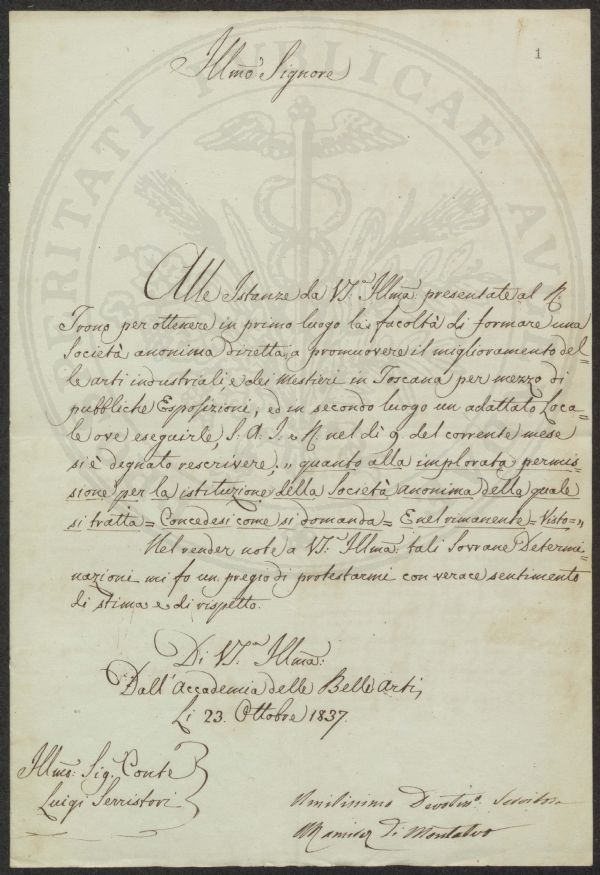 1
Illmo Signore
Alle Istanze da V.S. Illma: presentate al R.
Trono per ottenere in primo luogo la facoltà di formare una
Società anonima diretta a promuovere il miglioramento del=
le arti industriali e dei mestieri in Toscana per mezzo di
pubbliche Esposizioni, ed in secondo luogo un adattato Loca=
le ove eseguirle, S. A. I. e R. nel dì 9 del corrente mese
si è degnato rescrivere: „ quanto alla implorata permis=
sione per la istituzione della Società anonima della quale
si tratta = Concedesi come si domanda = E nel rimanente = Visto = „
Nel render note a V.S. Illma: tali Sovrane Determi=
nazioni mi fo un pregio di protestarmi con verace sentimento
di stima e di rispetto.
Di V.S. Illma:
Dall'Accademia delle Belle Arti,
Li 23. Ottobre 1837.
Illmo: Sig. Conte
Luigi Serristori
Umilissimo Devotmo. Servitore
Ramirez Di Montalvo
VERITATI PUBLICAE